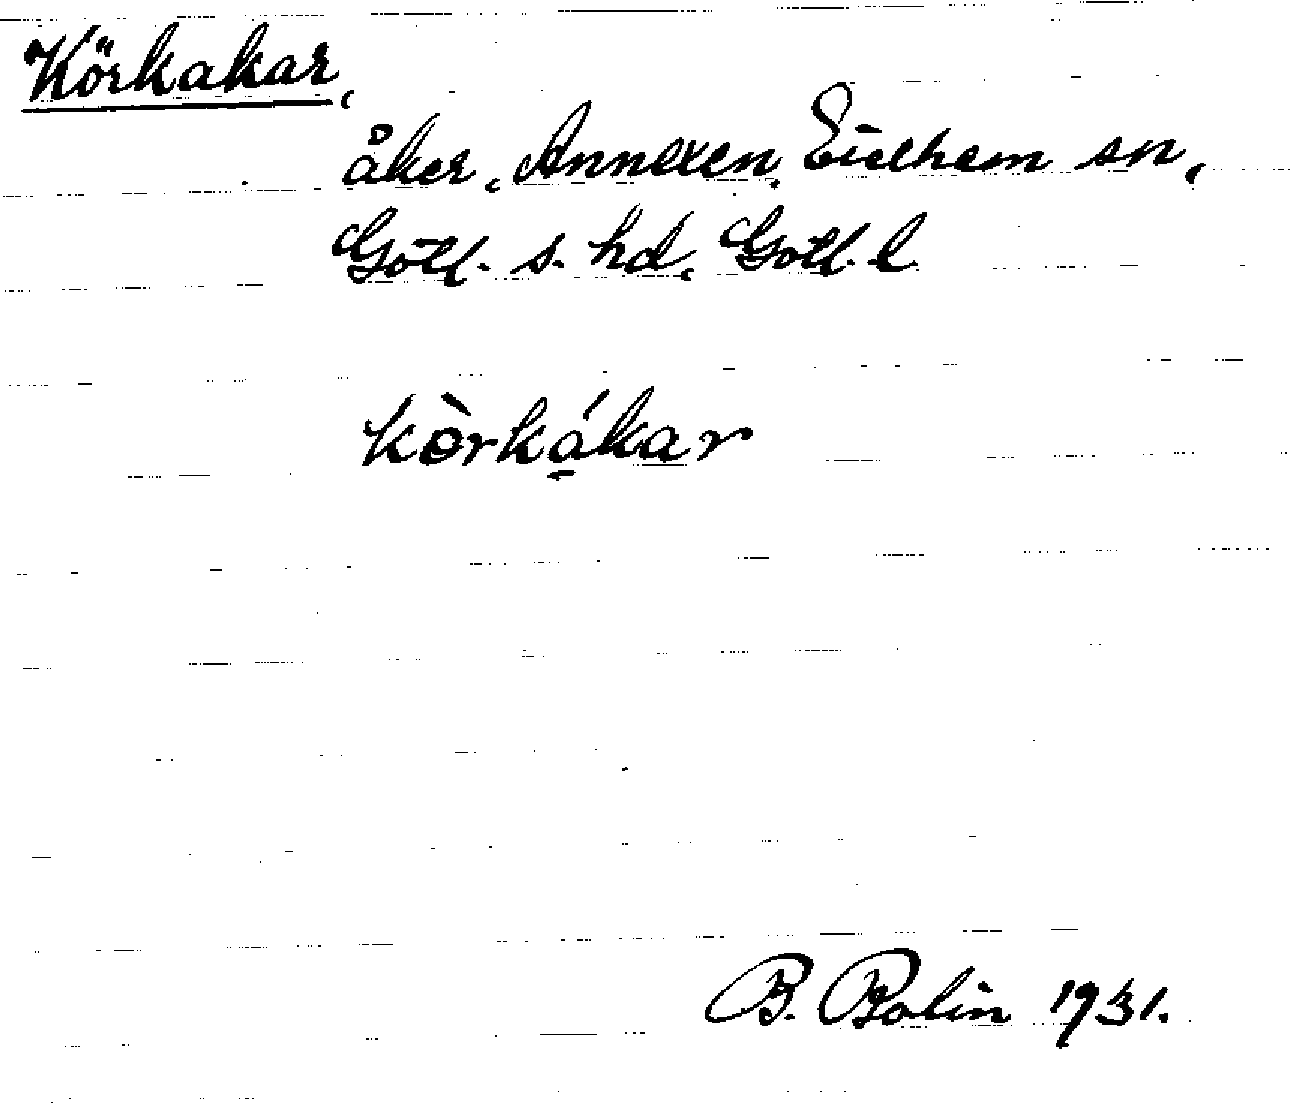 Körkakar,
åker, Annexen, Eidhem sn,
Gotl. s. hd, Gotl. l.
kòrká̱kar
B. Bolin 1931.